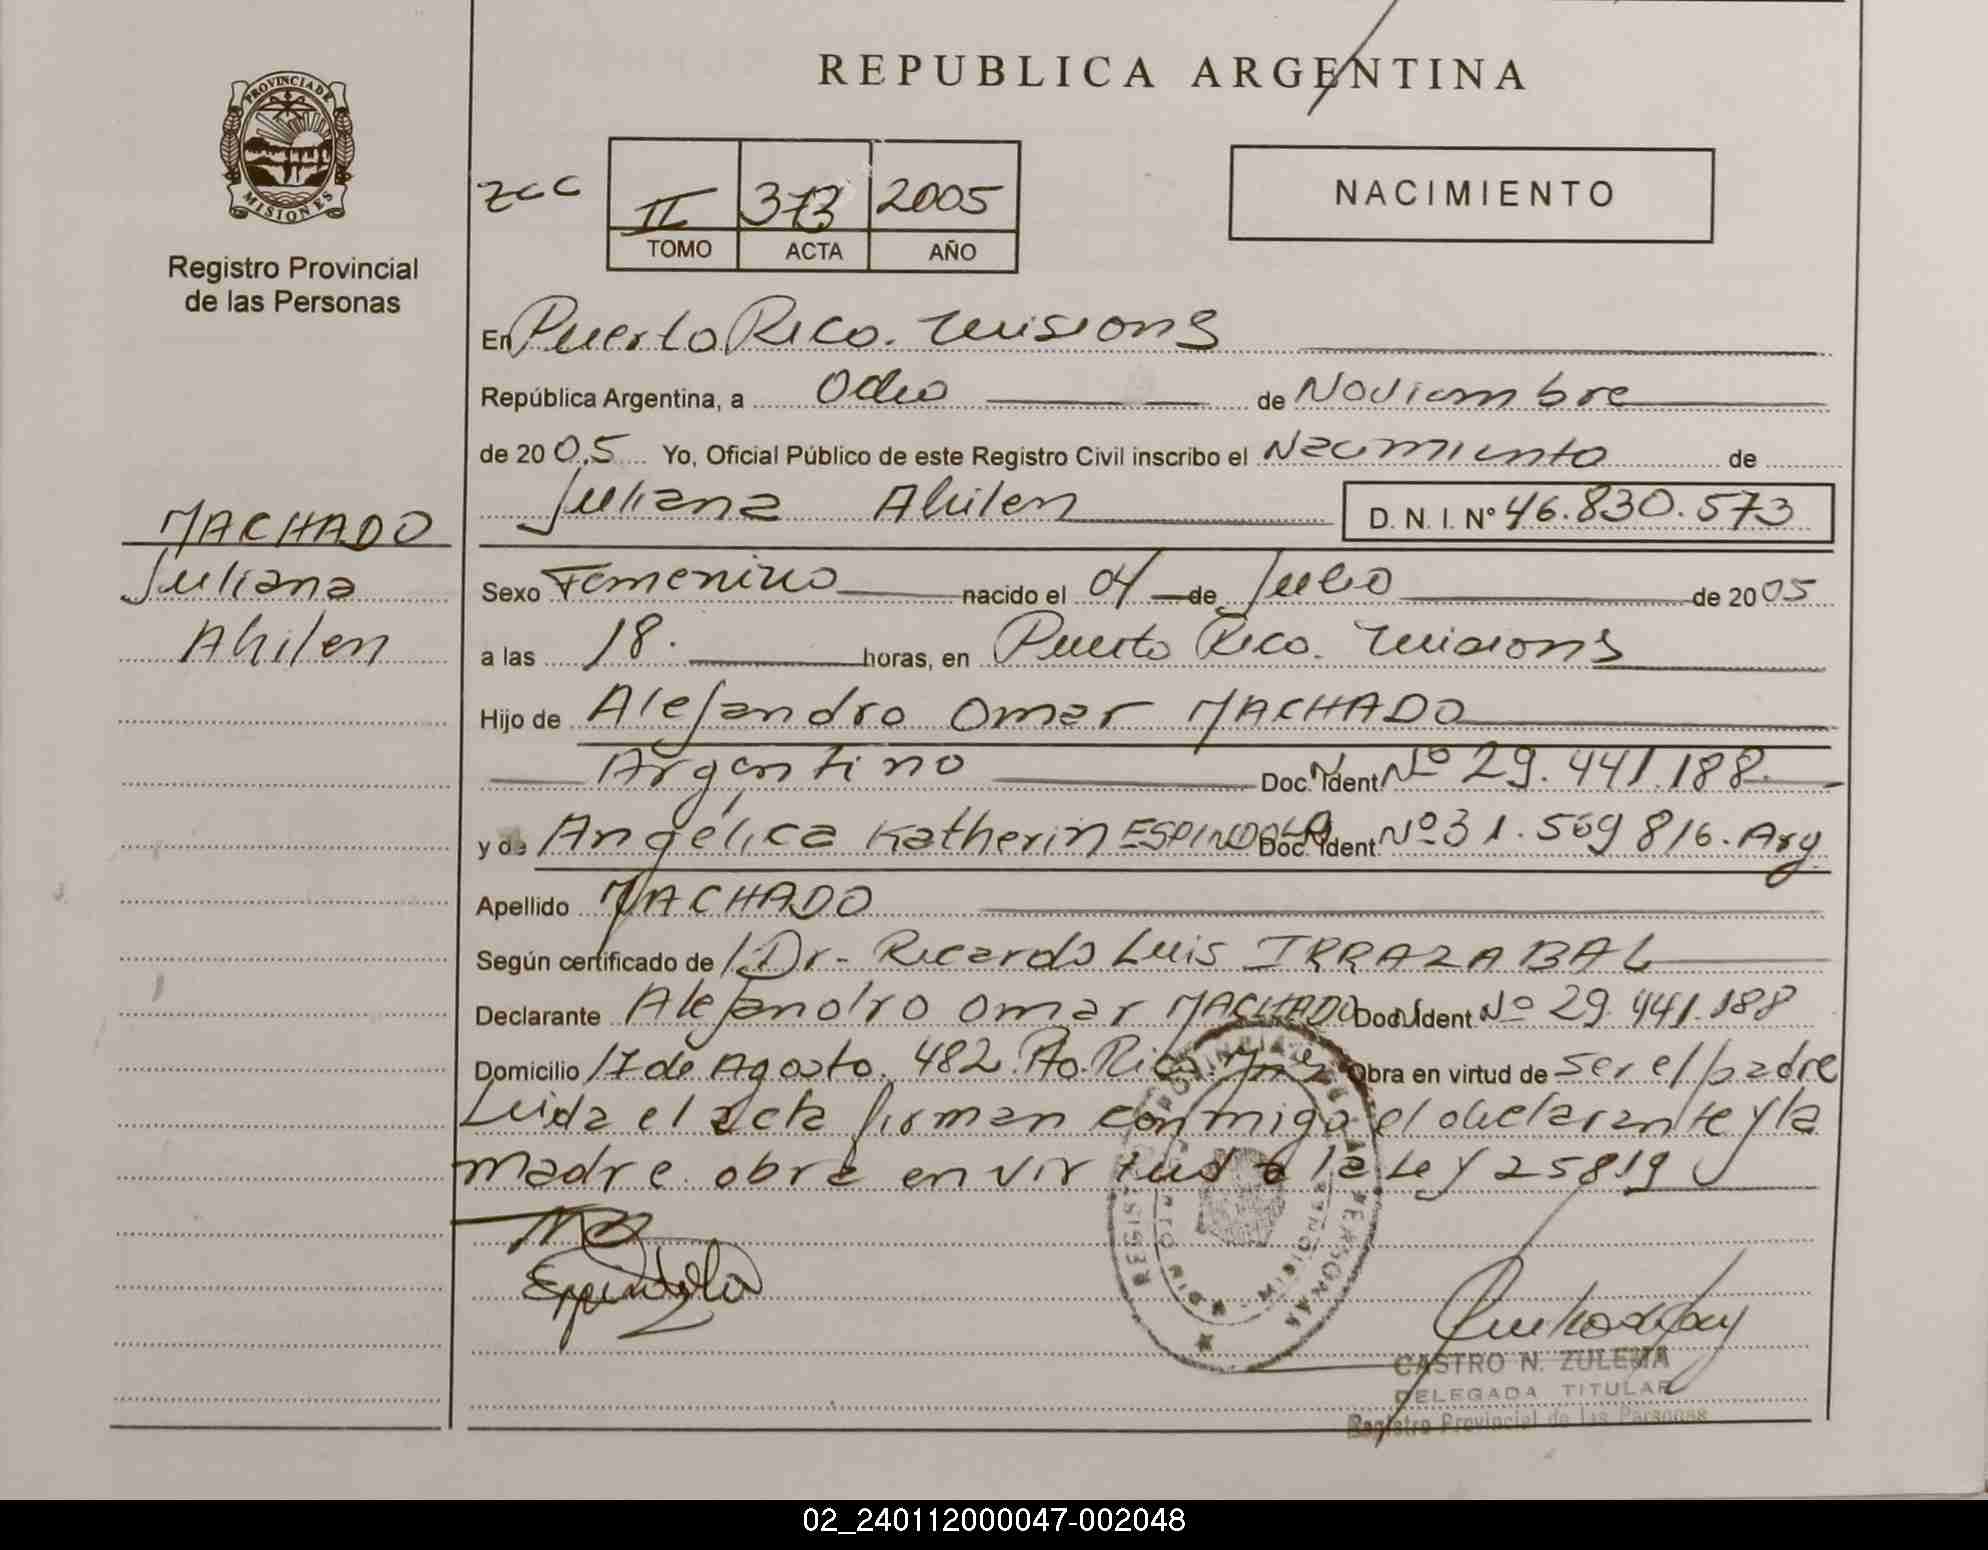 REPUBLICA ARGENTINA
PROVINCIA DE
MISIONES
Registro Provincial
de las Personas
zcc II 373 2005
TOMO ACTA AÑO
NACIMIENTO
En Puerto Rico. Misiones
República Argentina, a Ocho de Noviembre
de 20 05 Yo, Oficial Público de este Registro Civil inscribo el Nacimiento de
Juliana Ahilen D. N. I. Nº 46.830.573
MACHADO
Juliana
Ahilen
Sexo Femenino nacido el 04 de Julio de 20 05
a las 18. horas, en Puerto Rico. Misiones
Hijo de Alejandro Omar MACHADO
Argentino Doc. Ident Nº 29.441.188.
y de Angélica Katherin ESPINDOLA Doc. Ident. Nº 31.569 816. Arg
Apellido MACHADO
Según certificado de Dr. Ricardo Luis IRRAZABAL
Declarante Alejandro Omar MACHADO Doc. Ident. Nº 29.441.188
Domicilio 17 de Agosto. 482. Pto. Rico. Mnes Obra en virtud de ser el padre
Leida el acta firman conmigo el declarante y la
madre. obra en virtud a la Ley 25819
Espindola
CASTRO N. ZULEMA
DELEGADA TITULAR
Registro Provincial de las Personas
02_240112000047-002048